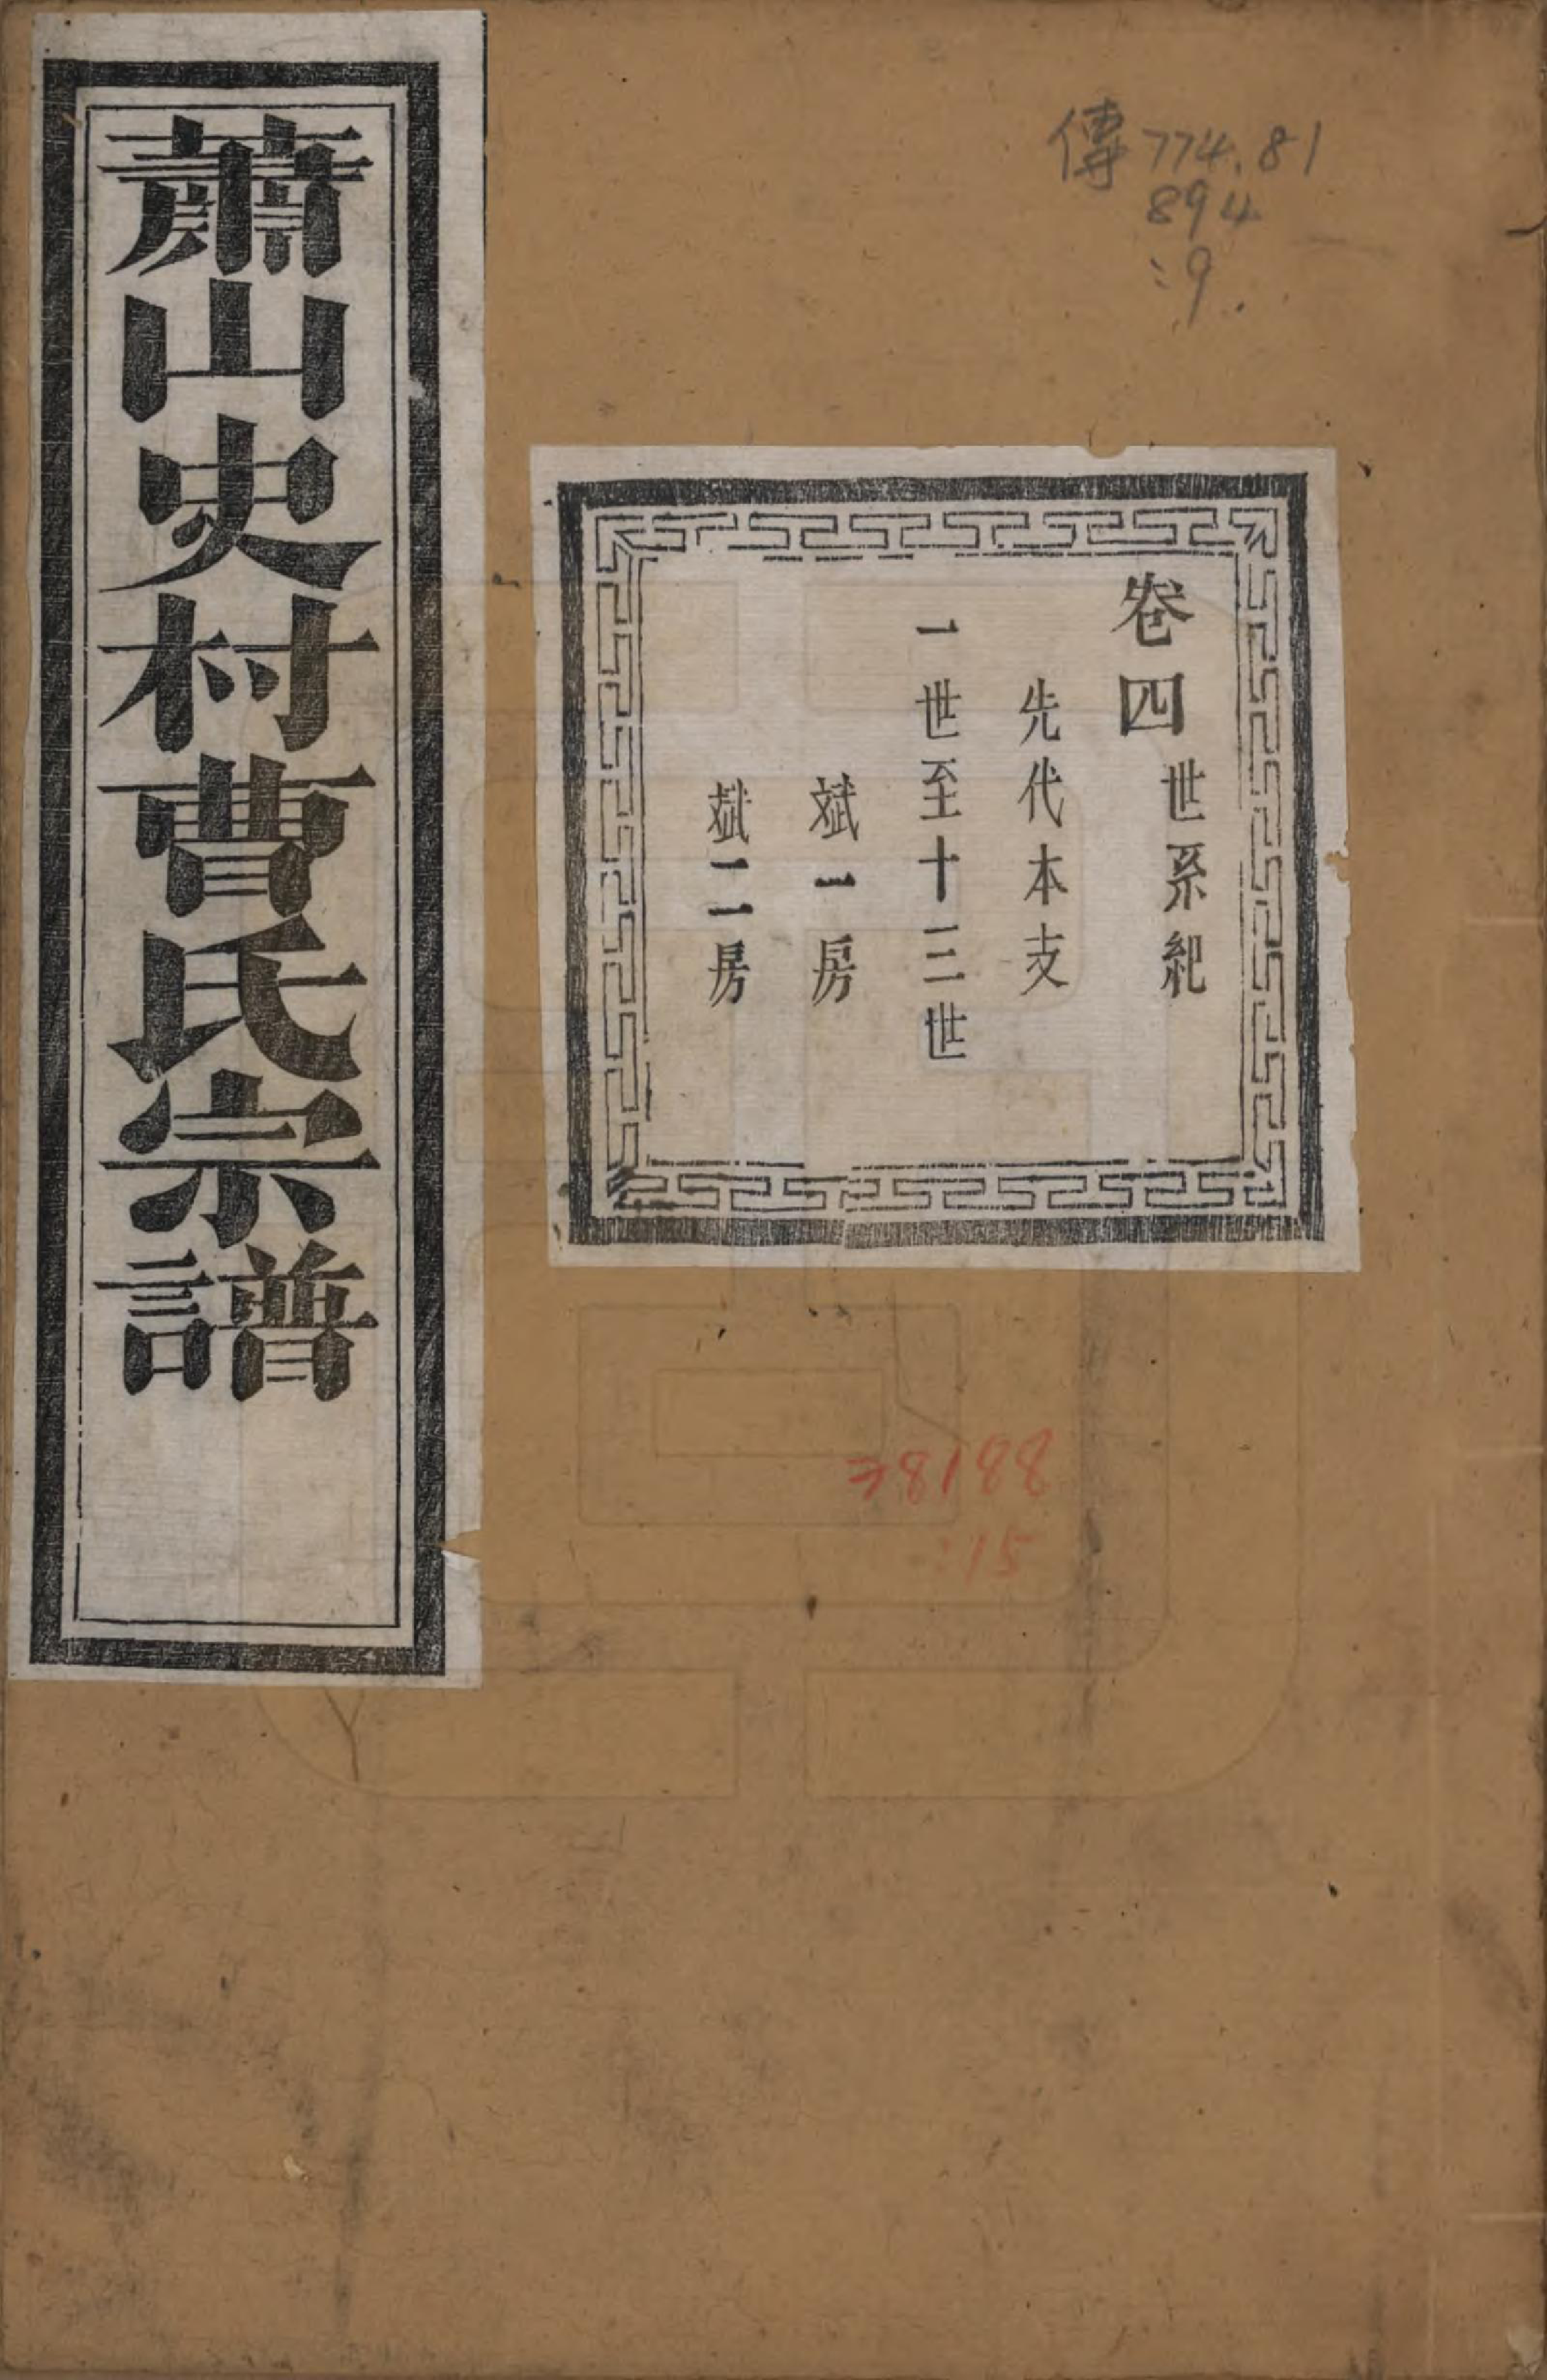 傳774.81
894
:9
卷四 世系紀
先代本支
一世至十三世
斌一房
斌二房
蕭山史村曹氏宗譜
38188
:15